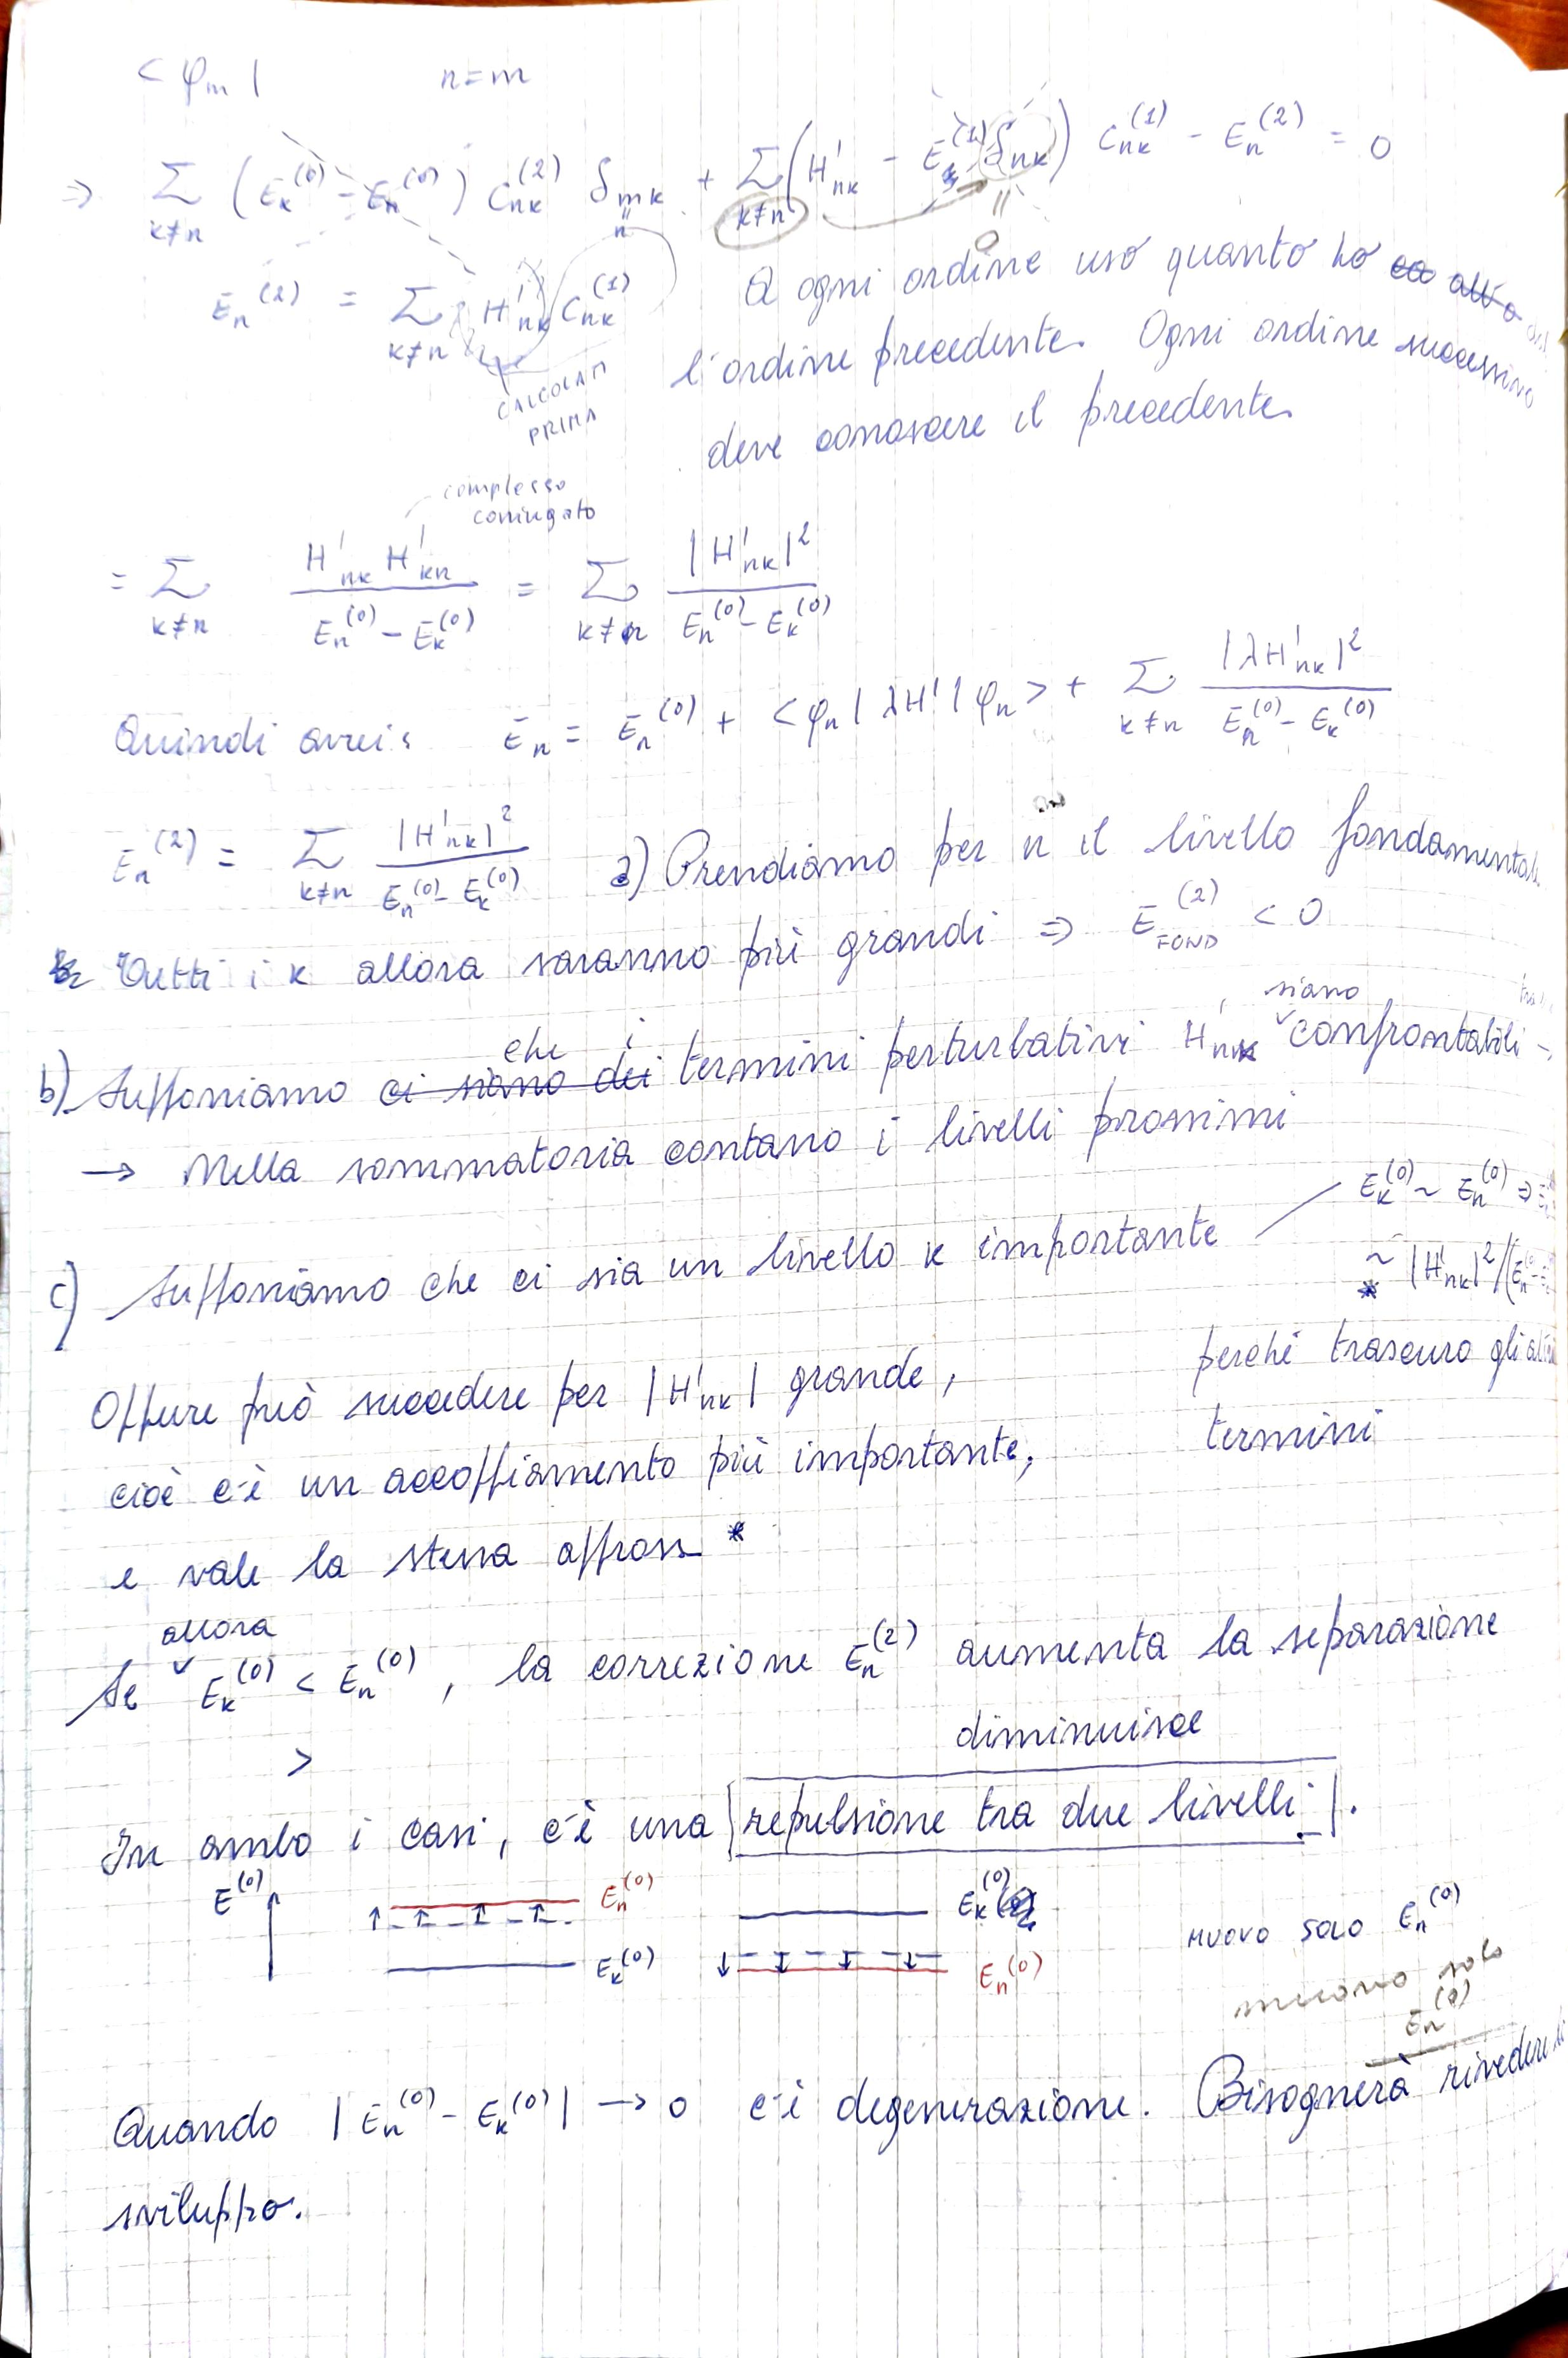 < φm | n = m
=> Σ k≠n (Ek(0) - En(0)) Cnk(2) δmk + Σ k≠n (H'nk - En(1) δnk) Cnk(1) - En(2) = 0
n
=
0
En(2) = Σ k≠n H'nk Cnk(1)
CALCOLATI
PRIMA
A ogni ordine uso quanto ho
l'ordine precedente. Ogni ordine successivo
deve conoscere il precedente.
complesso
coniugato
= Σ k≠n H'nk H'kn / En(0) - Ek(0) = Σ k≠n |H'nk|² / En(0) - Ek(0)
Quindi avrei: En = En(0) + < φn | λH' | φn > + Σ k≠n |λH'nk|² / En(0) - Ek(0)
En(2) = Σ k≠n |H'nk|² / En(0) - Ek(0)
a) Prendiamo per n il livello fondamentale
Tutti i k allora saranno più grandi => E FOND (2) < 0
b) Supponiamo che i termini perturbativi H'nk siano confrontabili
→ Nella sommatoria contano i livelli prossimi
c) Supponiamo che ci sia un livello k importante
Ek(0) ~ En(0) =>
~ * |H'nk|² / (En
perché trascuro gli altri
termini
Oppure può succedere per |H'nk| grande,
cioè c'è un accoppiamento più importante,
e vale la stessa appross *
allora
Se Ek(0) < En(0), la correzione En(2) aumenta la separazione
> diminuisce
In ambo i casi, c'è una repulsione tra due livelli.
E(0) En(0) Ek(0)
Ek(0) En(0)
MUOVO SOLO En(0)
muovo solo
En(0)
Quando | En(0) - Ek(0) | → 0 c'è degenerazione. Bisognerà rivedere
sviluppo.